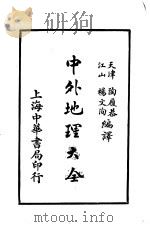 天津 陶履恭
江山 楊文洵 編譯
中外地理大全
上海中華書局印行
http://tourma.com